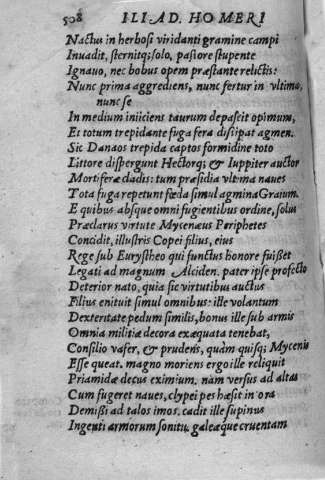 508 ILIAD. HOMERI
Nactus in herbosi viridanti gramine campi
Inuadit, sternitq; solo, pastore stupente
Ignauo, nec bobus opem præstante relictis:
Nunc prima aggrediens, nunc fertur in vltima,
nunc se
In medium iniiciens taurum depascit opimum,
Et totum trepidante fuga fera dissipat agmen.
Sic Danaos trepida captos formidine toto
Littore dispergunt Hectorq; & Iuppiter auctor
Mortiferæ cladis: tum præsidia vltima naues
Tota fuga repetunt fœda simul agmina Graium.
E quibus absque omni fugientibus ordine, solus
Præclarus virtute Mycenæus Periphetes
Concidit, illustris Copei filius, eius
Rege sub Eurystheo qui functus honore fuisset
Legati ad magnum Alciden. pater ipse profecto
Deterior nato, quia sic virtutibus auctus
Filius enituit simul omnibus: ille volantum
Dexteritate pedum similis, bonus ille sub armis
Omnia militiæ decora exæquata tenebat,
Consilio vafer, & prudens, quàm quisq; Mycenis
Esse queat. magno moriens ergo ille reliquit
Priamidæ decus eximium. nam versus ad altas
Cum fugeret naues, clypei pes hæsit in ora
Demissi ad talos imos. cadit ille supinus
Ingenti armorum sonitu, galeæque cruentam